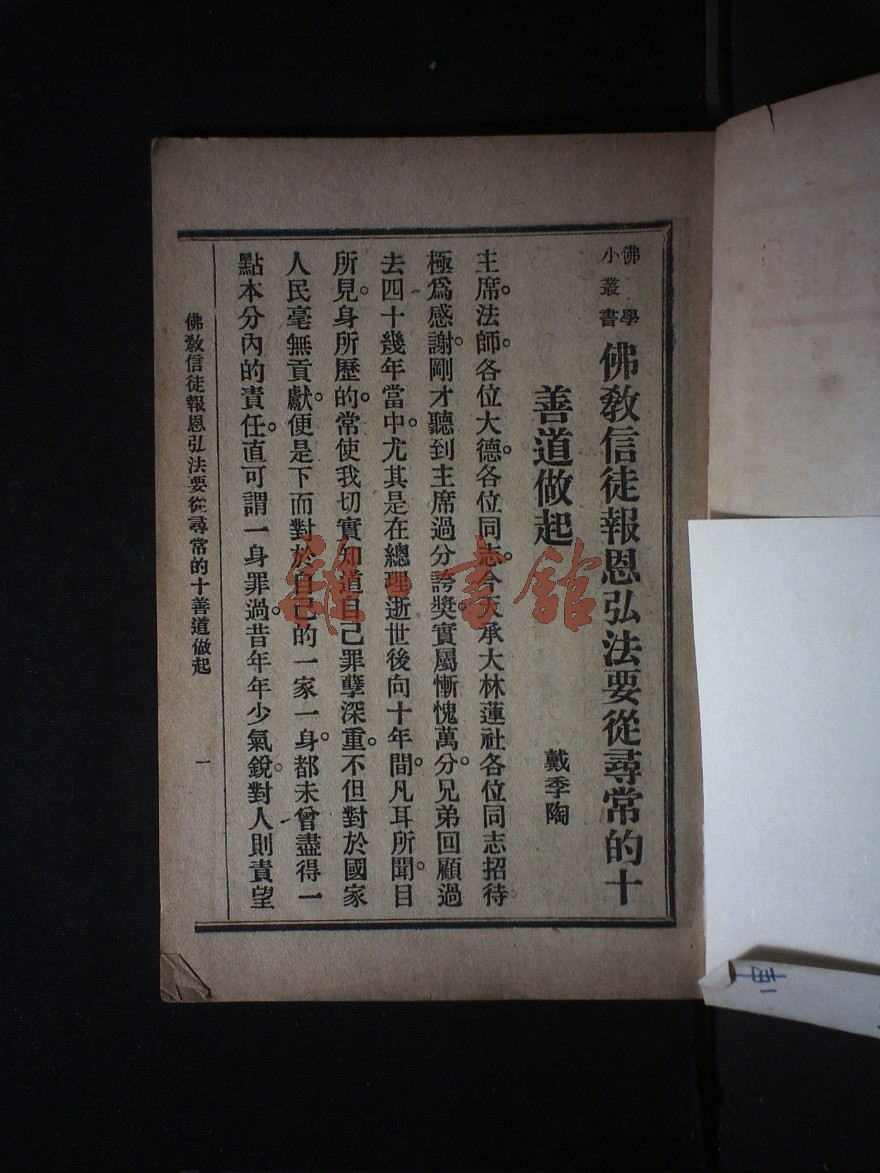 佛學
小叢書
佛敎信徒報恩弘法要從尋常的十
善道做起
戴季陶
主席。法師。各位大德。各位同志。今天承大林蓮社各位同志招待。
極爲感謝。剛才聽到主席過分誇獎。實屬慚愧萬分。兄弟回顧過
去四十幾年當中。尤其是在總理逝世後向十年間。凡耳所聞。目
所見。身所歷的。常使我切實知道自己罪孽深重。不但對於國家
人民毫無貢獻。便是下而對於自己的一家一身。都未曾盡得一
點本分內的責任。直可謂一身罪過。昔年年少氣銳。對人則責望
佛敎信徒報恩弘法要從尋常的十善道做起
一
雜·書館